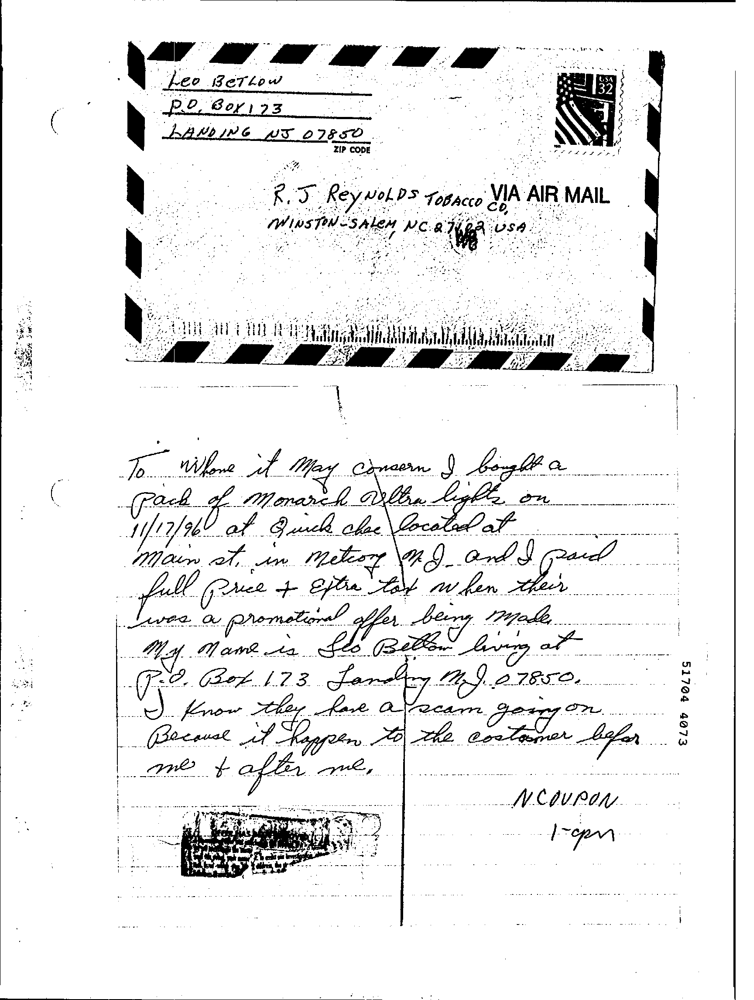 Leo BetLow
P.O. BOX 173
LANDING NJ 07850
ZIP CODE
USA
32
R.J ReyNOLDS TOBACCO CO,
VIA AIR MAIL
WINSTON-SALEM, NC 27102 USA
To Whome it May consern I bought a
Pack of Monarch Ultra lights on
11/17/96 at Quick chec located at
Main st. in Metcong N.J. and I paid
full Price + Extra tax when their
was a promotional offer being made,
My Name is Leo Betlow living at
P.O. Box 173 Landing N.J. 07850.
I Know they have a scam going on
Because it happen to the costomer befor
me + after me.
NCOUPON
1-cpn
51704 4073